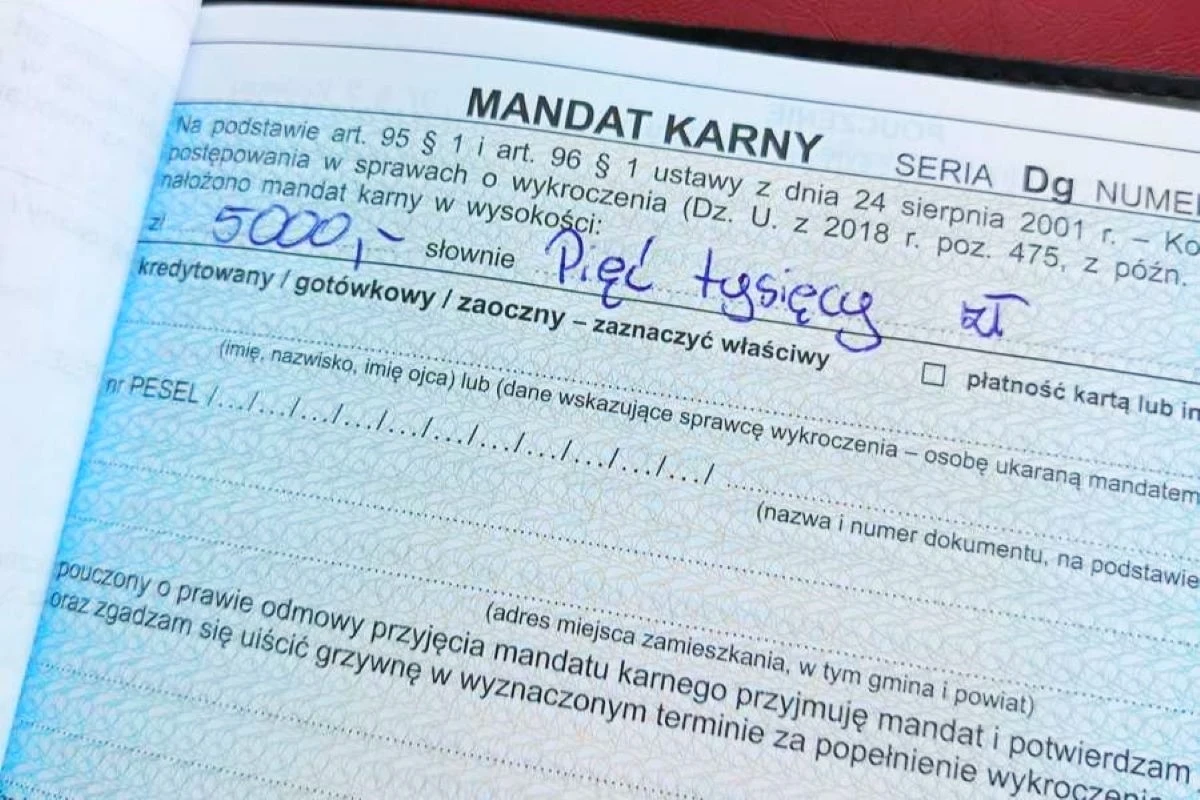 MANDAT KARNY SERIA Dg
Na podstawie art. 95 § 1 i art. 96 § 1 ustawy z dnia 24 sierpnia 2001 r. – Ko
postępowania w sprawach o wykroczenia (Dz. U. z 2018 r. poz. 475, z późn.
nałożono mandat karny w wysokości:
zł 5000,- słownie Pięć tysięcy zł
kredytowany / gotówkowy / zaoczny – zaznaczyć właściwy
płatność kartą lub in
(imię, nazwisko, imię ojca) lub (dane wskazujące sprawcę wykroczenia – osobę ukaraną mandatem
nr PESEL /.../.../.../.../.../.../.../.../.../.../.../
(nazwa i numer dokumentu, na podstawie
(adres miejsca zamieszkania, w tym gmina i powiat)
pouczony o prawie odmowy przyjęcia mandatu karnego przyjmuję mandat i potwierdzam
oraz zgadzam się uiścić grzywnę w wyznaczonym terminie za popełnienie wykroczenia